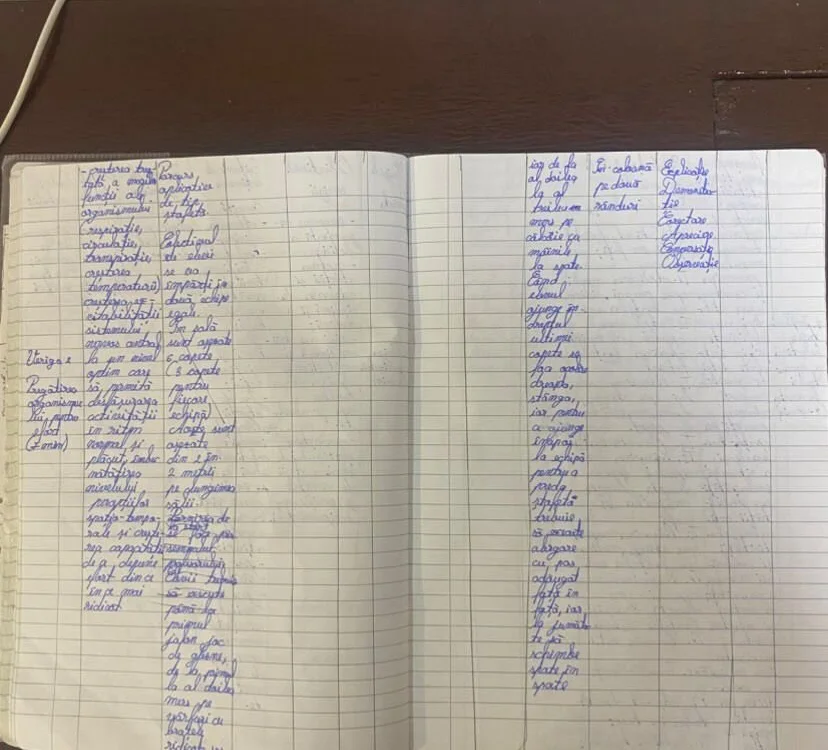 Veriga 2
Pregătirea
organismu-
lui pentru
efort
(7 min)
- creșterea trep-
tată a marilor
funcții ale
organismului
(respirație,
circulație,
transpirație,
creșterea
temperaturii)
creșterea ex-
citabilității
sistemului
nervos central
la un nivel
optim care
să permită
desfășurarea
activității
în ritm
normal și
plăcut, îmbu-
nătățirea
nivelului
percepțiilor
spațio-tempo-
rale și crește-
rea capacității
de a depune
efort din ce
în ce mai
ridicat
Parcurs
aplicativ
de tip
ștafetă.
Efectivul
de elevi
se va
împărți în
două echipe
egale.
În sală
sunt așezate
6 copete
(3 copete
pentru
fiecare
echipă)
Aceste sunt
așezate
din 2 în
2 metri
pe lungimea
sălii.
Pornirea de
la start
se face prin
semnalul
profesorului.
Elevii trebuie
să execute
până la
primul
jalon joc
de glezne,
de la primul
la al doilea
mers pe
vârfuri cu
brațele
ridicate
iar de la
al doilea
la al
treilea
mers pe
călcâie cu
mâinile
la spate.
Când
elevul
ajunge în
dreptul
ultimei
copete va
face
dreapta,
stânga,
iar pentru
a ajunge
înapoi
la echipă
pentru a
preda
ștafeta
trebuie
să execute
alergare
cu pas
adăugat
față în
față, iar
la jumăta-
te să
schimbe
spate în
spate
În coloană
pe două
rânduri
Explicație
Demonstra-
ție
Exersare
Apreciere
Conversație
Observație